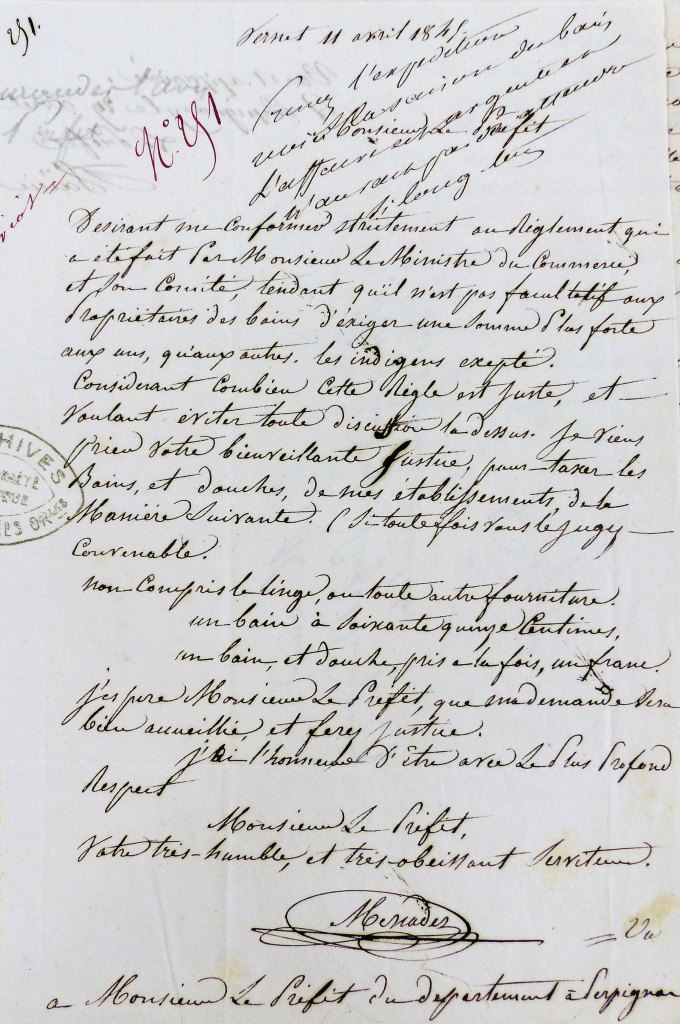 251.
Vernet 11 avril 184
l'expédition
la saison des bains
Monsieur Le Préfet
L'affaire est urgente
N'aurait pas
si long
N° 251
Desirant me conformer strictement au Règlement qui
a été fait Par Monsieur Le Ministre du Commerce,
et Son Comité, tendant qu'il n'est pas facultatif aux
Propriétaires des bains d'éxiger une Somme Plus forte
aux uns, qu'aux autres. les indigens exepté.
Considerant Combien Cette Règle est Juste, et —
Voulant éviter toute discussion la dessus. Je viens
prier Votre bienveillante Justice, pour taxer les
Bains, et douches, de mes établissements, de la
Maniére Suivante. (Si toute fois vous le jugez —
Convenable.
non Compris le linge, ou toute autre fourniture.
un bain à Soixante quinze Centimes,
un bain, et douche, pris a la fois, un franc.
j'espere Monsieur Le Préfet, que ma demande Sera
bien accueillie, et ferez justice.
j'ai l'honneur d'être avec Le Plus Profond
Respect
Monsieur Le Préfet,
Votre très-humble, et très-obeissant Serviteur.
Mersades
Vu
a Monsieur Le Préfet du département à Perpignan
CHIVES